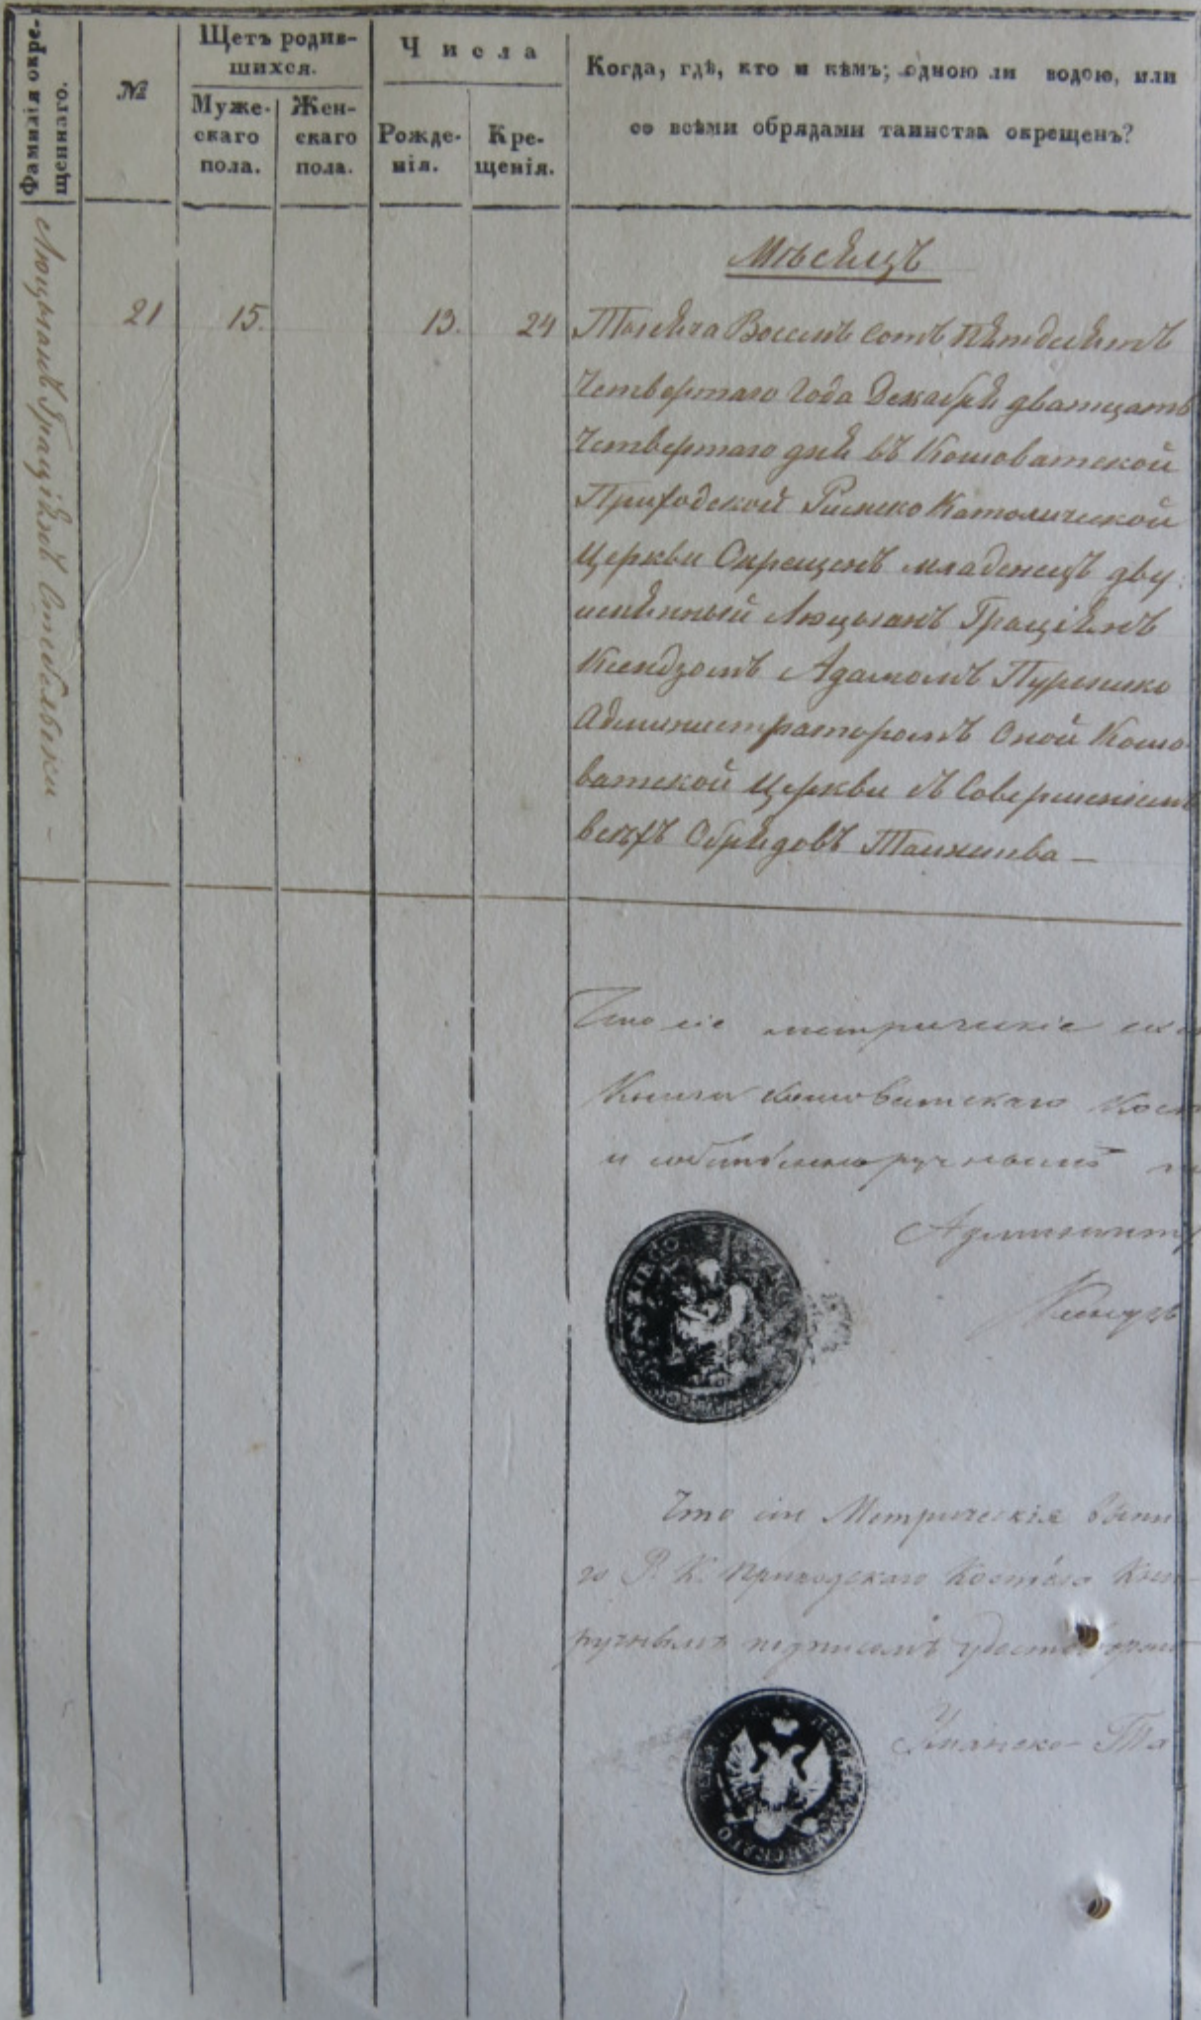 Фамилія окре-
щеннаго.
№
Щетъ родив-
шихся.
Муже-
скаго
пола.
Жен-
скаго
пола.
Числа
Рожде-
нія.
Кре-
щенія.
Когда, гдѣ, кто и кѣмъ; одною ли водою, или
со всѣми обрядами таинства окрещенъ?
Люцыанъ Граціянъ
Мѣсяцъ
21 15. 13. 24 Тысяча Восемь сотъ Пятдесятъ
Четвертаго Года Декабря дватцать
Четвертаго дня въ Кошоватской
Приходской Римско Католической
Церкви Окрещенъ младенецъ дву
имянный Люцыанъ Граціянъ
Ксендзомъ Адамомъ
Администраторомъ Оной Кошо
ватской Церкви съ Совершеніемъ
всѣхъ Обрядовъ Таинства —
Что сіе метрическіе
Книги Кошоватскаго
и собственноручнымъ
Ксендзъ
Что сіи Метрическія
го Р. К. Приходскаго Костёла
ручнымъ подписомъ
Уманско-